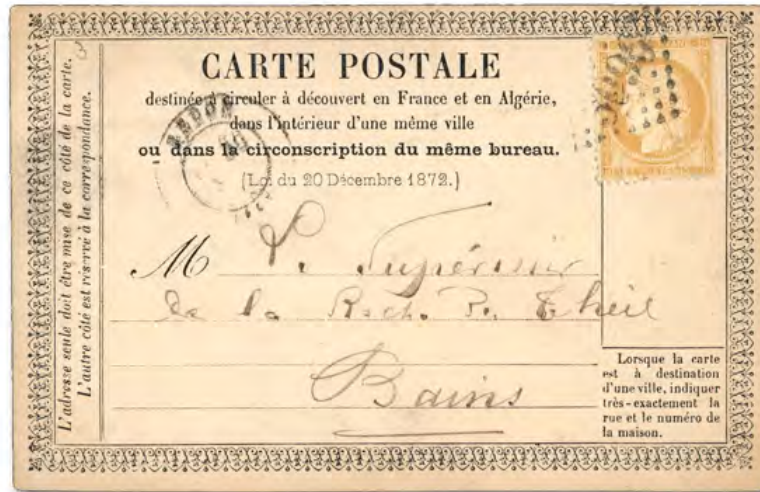 L'adresse seule doit être mise de ce côté de la carte.
L'autre côté est réservé à la correspondance.
CARTE POSTALE
destinée à circuler à découvert en France et en Algérie,
dans l'intérieur d'une même ville
ou dans la circonscription du même bureau.
(Loi du 20 Décembre 1872.)
REDON
M L. Supérieur
de la Roch. Theil
Bains
Lorsque la carte
est à destination
d'une ville, indiquer
très-exactement la
rue et le numéro de
la maison.